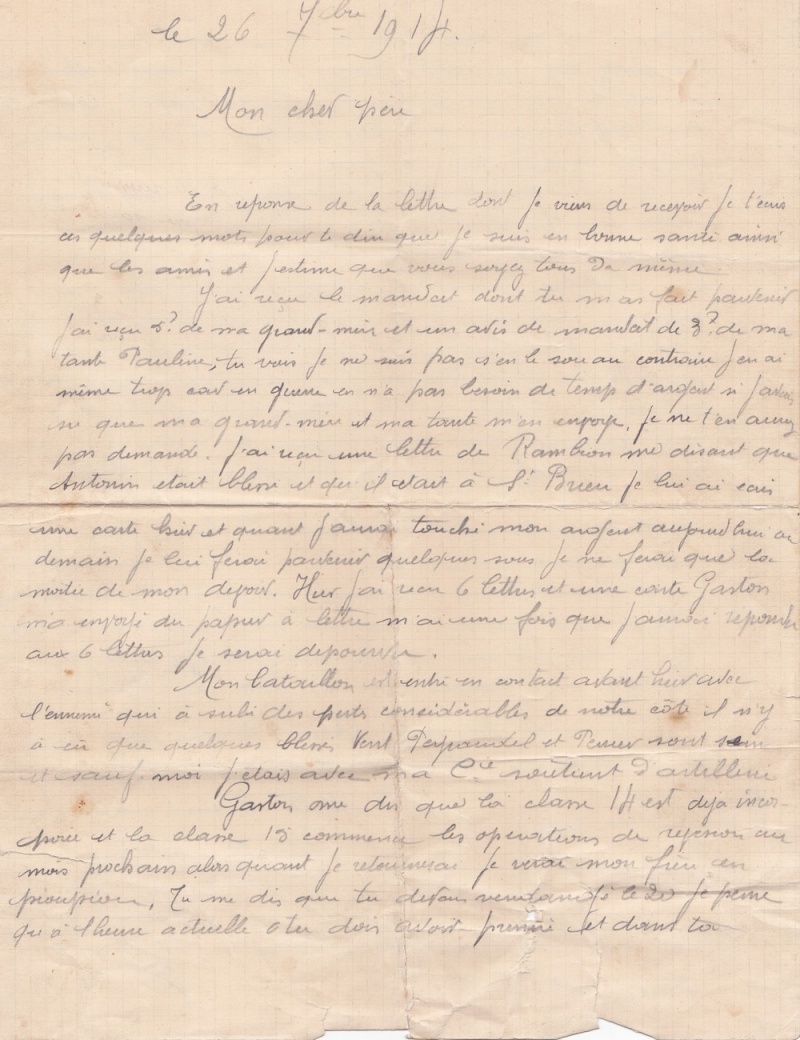 le 26 7bre 1914.
Mon cher père
En reponse de la lettre dont je viens de recevoir je t'ecris
ces quelques mots pour te dire que je suis en bonne santé ainsi
que les amis et j'estime que vous soyez tous de même.
J'ai reçu le mandat dont tu m'as fait parvenir
j'ai reçu 5f de ma grand-mère et un avis de mandat de 3f de ma
tante Pauline, tu vois je ne suis pas s'en le sou au contraire j'en ai
même trop car en guerre en n'a pas besoin de temp d'argent si j'avais
su que ma grand-mère et ma tante m'en envoye, je ne t'en aurez
pas demandé. J'ai reçu une lettre de Rambion me disant que
Antonin etait blessé et qu'il etait à St Brieu je lui ai ecris
une carte hier et quant j'aurai touché mon argent aujourd'hui ou
demain je lui ferai parvenir quelques sous je ne ferai que la
moitie de mon depoir. Hier j'ai reçu 6 lettres et une carte Gaston
m'a envoyé du papier à lettre m'ai une fois que j'aurai repondu
aux 6 lettres je serai depourvu.
Mon bataillon est entré en contact avant hier avec
l'ennemi qui à subi des perts considérables de notre côte il n'y
à eu que quelques blessés et sont sein
et sauf moi j'etais avec ma Cie soutient d'artillerie
Gaston me dis que la classe 14 est deja incor-
porée et la classe 15 commence les operations de revision au
mois prochain alors quant je retournerai je verai mon fieu en
pioupiou. Tu me dis que tu devais vendangé le 20 je pense
qu'à l'heure actuelle tu dois avoir et dont ta